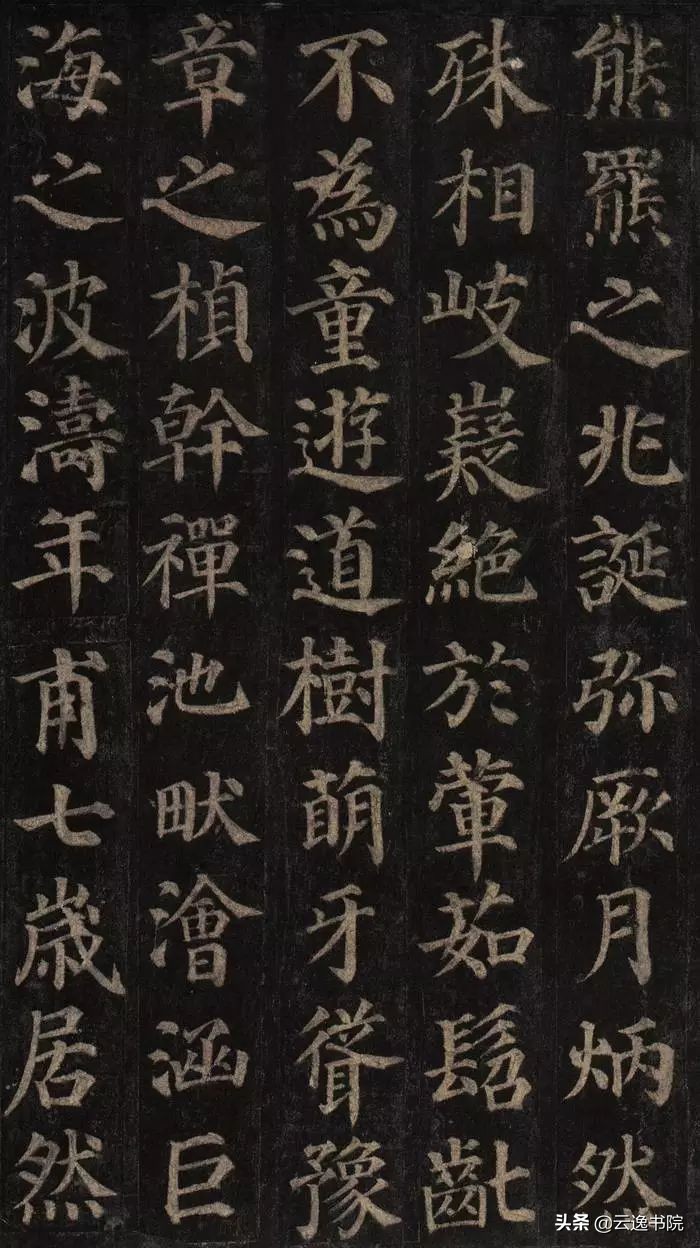 熊羆之兆誕弥厥月炳然
殊相岐嶷絶於葷茹髫齔
不為童遊道樹萌牙聳豫
章之楨幹禪池畎澮涵巨
海之波濤年甫七歳居然
头条 @云逸书院